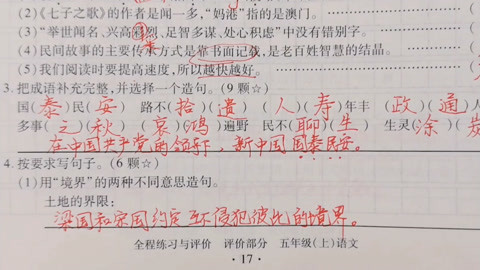 (2)《七子之歌》的作者是闻一多,“妈港”指的是澳门。
(3)“举世闻名、兴高彩烈、足智多谋、处心积虑”中没有错别字。
(4)民间故事的主要传承方式是靠书面记载,是老百姓智慧的结晶。
(5)我们阅读时要提高速度,所以越快越好。
3. 把成语补充完整,并选择一个造句。(9颗☆)
国(泰)民(安) 路不(拾)(遗) (人)(寿)年丰 (政)(通)
多事(之)(秋) (哀)(鸿)遍野 民不(聊)(生) 生灵(涂)(炭
在中国共产党的领导下,新中国国泰民安。
4. 按要求写句子。(6颗☆)
(1)用“境界”的两种不同意思造句。
土地的界限:
梁国和宋国约定互不侵犯彼此的境界。
全程练习与评价 评价部分 五年级(上)语文
· 17 ·